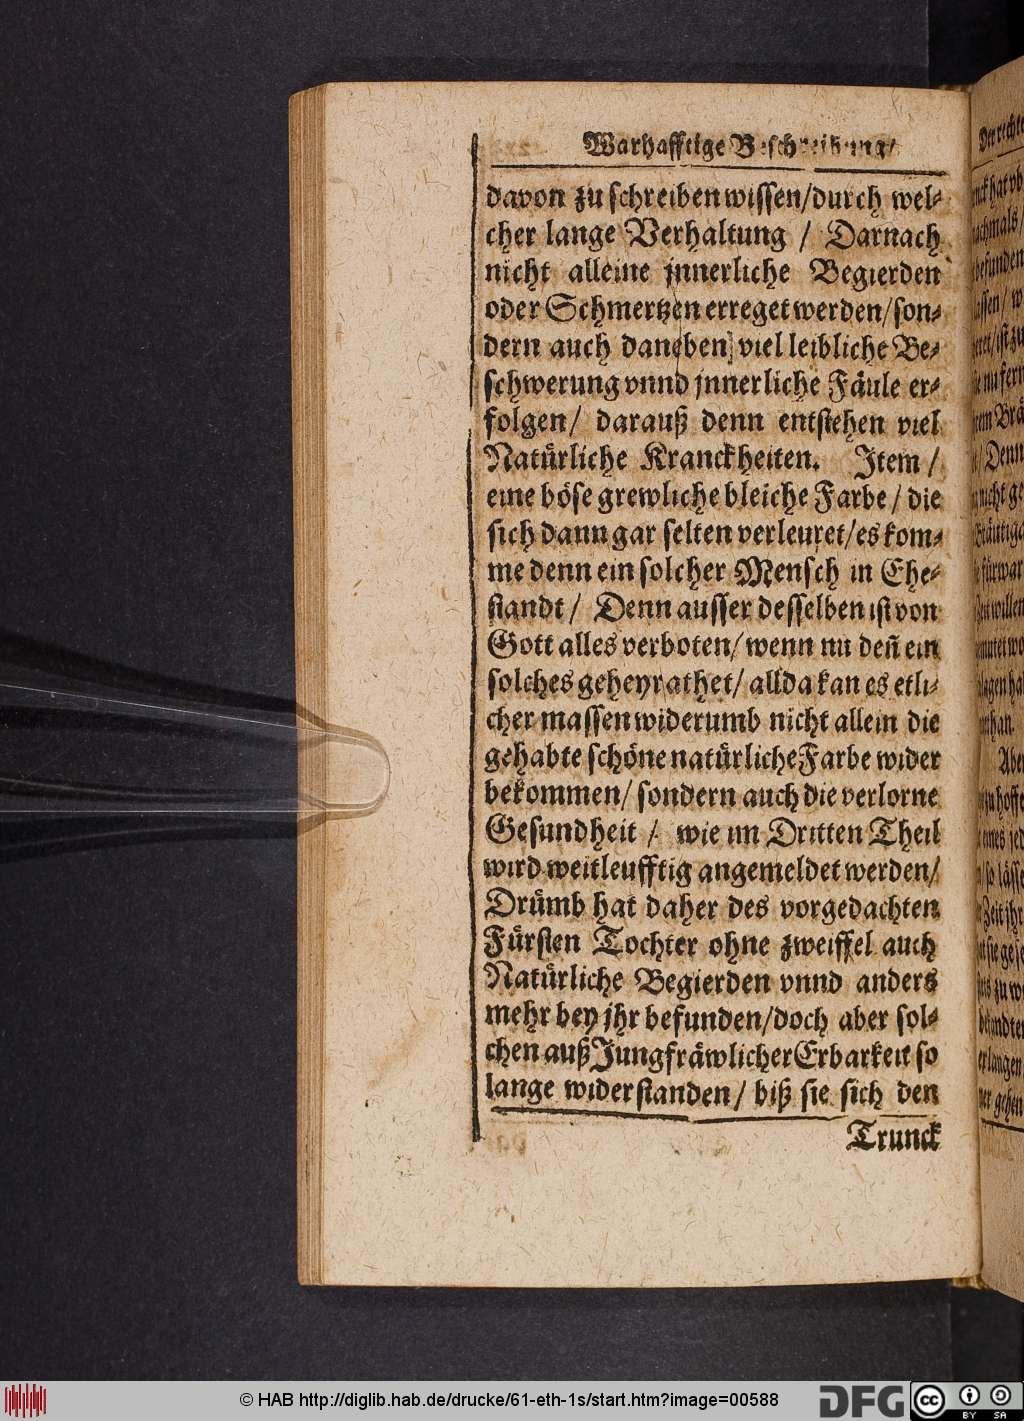 Warhafftige Beschreibung/
davon zu schreiben wissen/durch wel-
cher lange Verhaltung / Darnach
nicht alleine jnnerliche Begierden
oder Schmertzen erreget werden/son-
dern auch daneben viel leibliche Be-
schwerung vnnd jnnerliche Fäule er-
folgen/ darauß denn entstehen viel
Natürliche Kranckheiten. Item /
eine böse grewliche bleiche Farbe / die
sich dann gar selten verleuret/es kom-
me denn ein solcher Mensch in Ehe-
standt / Denn ausser desselben ist von
Gott alles verboten/ wenn nu deñ ein
solches geheyrathet/ allda kan es etli-
cher massen widerumb nicht allein die
gehabte schöne natürliche Farbe wider
bekommen/ sondern auch die verlorne
Gesundheit / wie im Dritten Theil
wird weitleufftig angemeldet werden/
Drümb hat daher des vorgedachten
Fürsten Tochter ohne zweiffel auch
Natürliche Begierden vnnd anders
mehr bey jhr befunden/doch aber sol-
chen auß Jungfräwlicher Erbarkeit so
lange widerstanden / biß sie sich den
Trunck
Der rechte
hat
/ Denn
nicht
Aber
Zeit jhr
zu
erlangen
gehen
© HAB http://diglib.hab.de/drucke/61-eth-1s/start.htm?image=00588
DFG
cc
BY SA